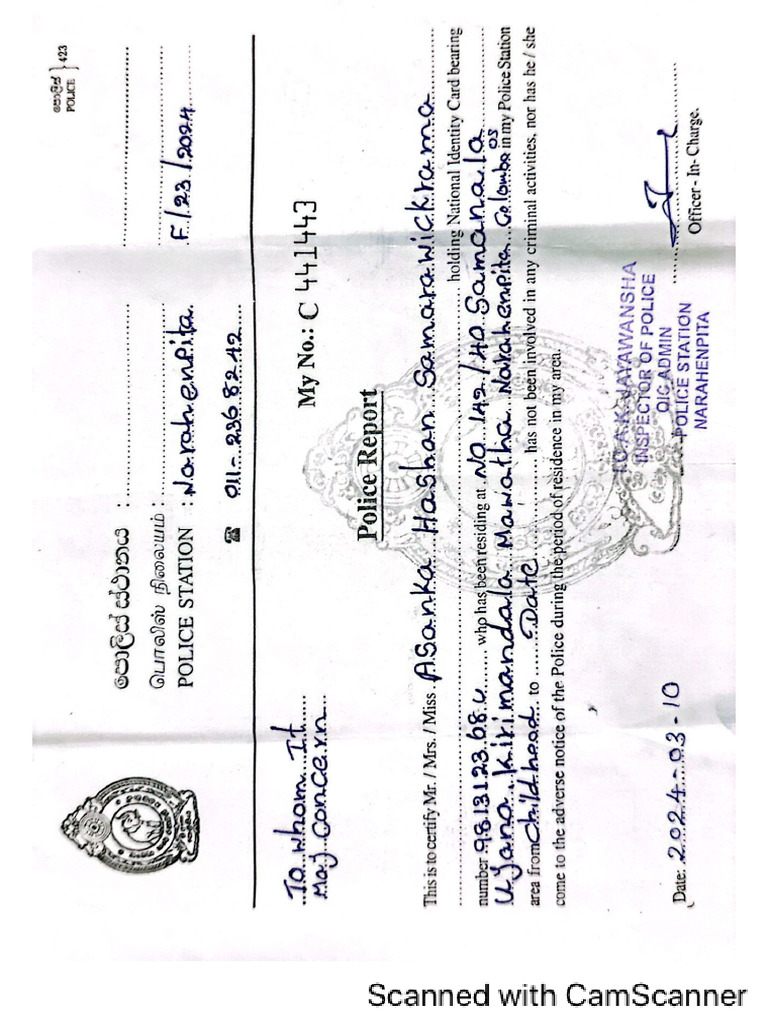 පොලිස් } 423
POLICE
පොලිස් ස්ථානය :
பொலிஸ் நிலையம் :
POLICE STATION : Narahenpita. F/23/2024
☎ 011-236 8242
To Whom It
May Concern
My No.: C 441443
Police Report
This is to certify Mr. / Mrs. / Miss. Asanka Hashan Samarawickrama
holding National Identity Card bearing
number who has been residing at NO 142/40 Samanala
Uyana, Kirimandala Mawatha Narahenpita Colombo 05 in my Police Station
area from Childhead to Date has not been involved in any criminal activities, nor has he / she
come to the adverse notice of the Police during the period of residence in my area.
INSPECTOR OF POLICE
OIC ADMIN
POLICE STATION
NARAHENPITA
Officer - In- Charge.
Date: 2024-03-10
Scanned with CamScanner